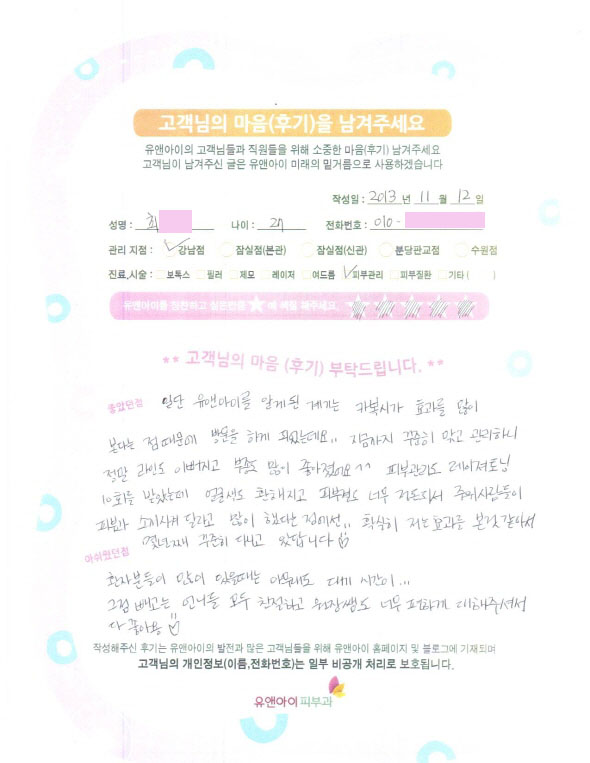 고객님의 마음(후기)을 남겨주세요
유앤아이의 고객님들과 직원들을 위해 소중한 마음(후기) 남겨주세요
고객님이 남겨주신 글은 유앤아이 미래의 밑거름으로 사용하겠습니다
작성일 : 2013 년 11 월 12 일
성명 : 최 나이 : 27 전화번호 : 010 -
관리 지점 : 강남점 잠실점(본관) 잠실점(신관) 분당판교점 수원점
진료,시술 : 보톡스 필러 제모 레이저 여드름 피부관리 피부질환 기타 ( )
유앤아이를 칭찬하고 싶은만큼 ★ 로 색칠 해주세요. ★★★★★
** 고객님의 마음 (후기) 부탁드립니다. **
좋았던점 일단 유앤아이를 알게된 계기는 카복시가 효과를 많이
본다는 점때문에 방문을 하게 되었는데요.. 지금까지 꾸준히 맞고 관리하니
정말 라인도 이뻐지고 부종도 많이 좋아졌어요^^ 피부관리도 레이져토닝
10회를 받았는데 얼굴색도 환해지고 피부결도 너무 저도다서 주위사람들이
피부과 소개시켜 달라고 많이 했다는 점에서.. 확실히 저는 효과를 본것같아서
몇년째 꾸준히 다니고 있답니다
아쉬웠던점
환자분들이 많이 있을때는 아무래도 대기 시간이...
그점 빼고는 언니들 모두 친절하고 원장쌤도 너무 편하게 대해주셔서
다 좋아용
작성해주신 후기는 유앤아이의 발전과 많은 고객님들을 위해 유앤아이 홈페이지 및 블로그에 기재되며
고객님의 개인정보(이름,전화번호)는 일부 비공개 처리로 보호됩니다.
유앤아이 피부과